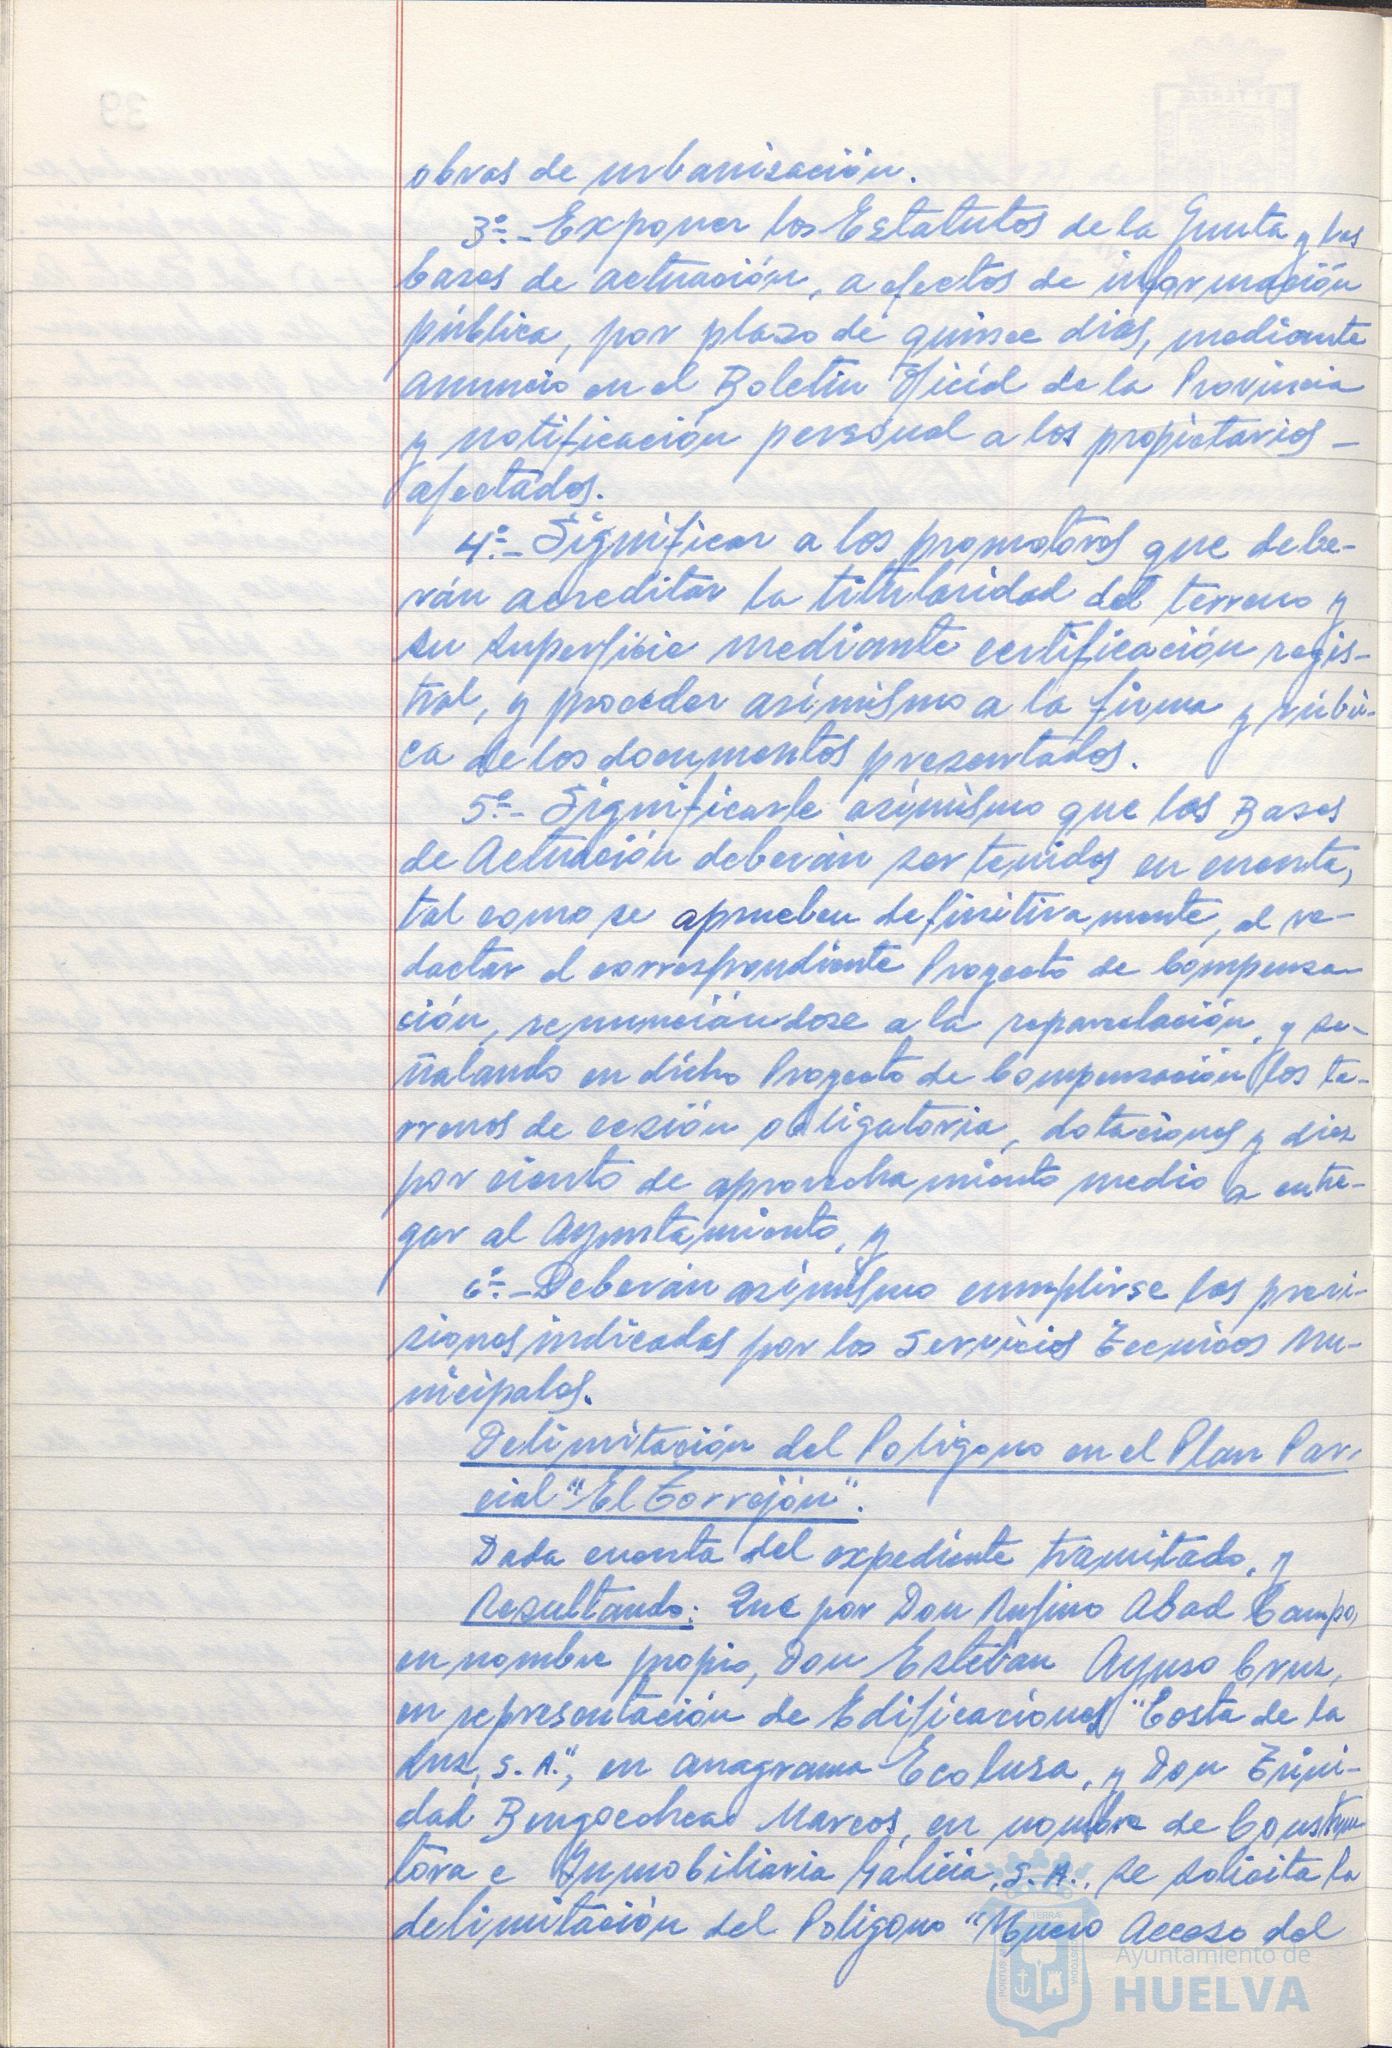 obras de urbanización.
3º.- Exponer los Estatutos de la Junta y las
bases de actuación, a efectos de información
pública, por plazo de quince días, mediante
anuncio en el Boletín Oficial de la Provincia
y notificación personal a los propietarios -
afectados.
4º.- Significar a los promotores que debe-
rán acreditar la titularidad del terreno y
su superficie mediante certificación regis-
tral, y proceder asimismo a la firma y rúbri-
ca de los documentos presentados.
5º.- Significarle asimismo que las Bases
de Actuación deberán ser tenidas en cuenta,
tal como se aprueben definitivamente, al re-
dactar el correspondiente Proyecto de Compensa-
ción, renunciándose a la reparcelación, y se-
ñalando en dicho Proyecto de Compensación los te-
rrenos de cesión obligatoria, dotaciones y diez
por ciento de aprovechamiento medio a entre-
gar al Ayuntamiento, y
6º.- Deberán asimismo cumplirse las previ-
siones indicadas por los Servicios Técnicos Mu-
nicipales.
Delimitación del Polígono en el Plan Par-
cial "El Torrejón".
Dada cuenta del expediente tramitado, y
Resultando: Que por Don Rufino Abad Campo,
en nombre propio, Don Esteban Ayuso Cruz,
en representación de Edificaciones "Costa de la
Luz, S.A.", en anagrama Ecolusa, y Don Trini-
dad Bengoechea Marcos, en nombre de Construc-
tora e Inmobiliaria Galicia, S.A., se solicita la
delimitación del Polígono "Nuevo Acceso del
Ayuntamiento de
HUELVA